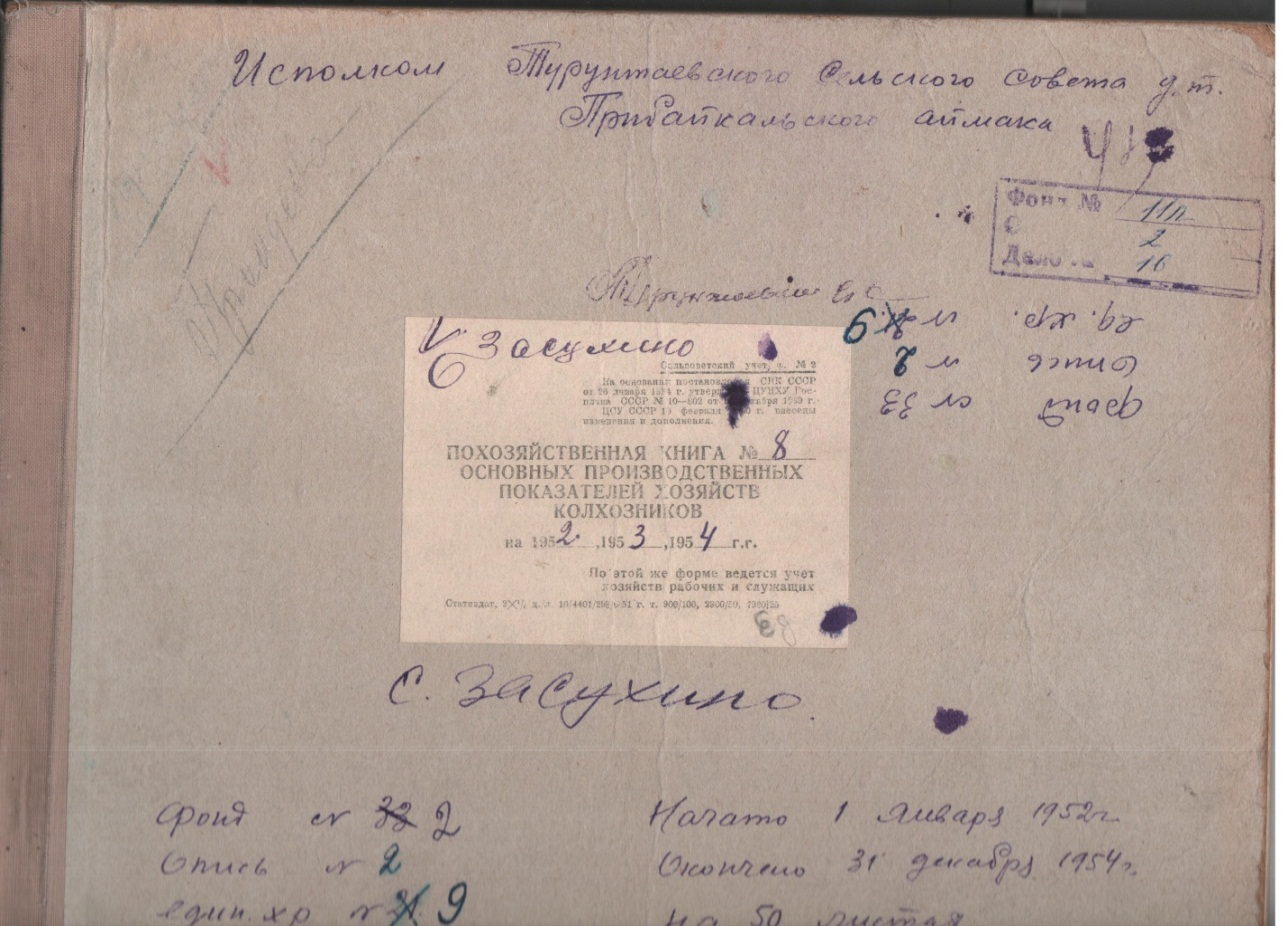 Исполком Турунтаевского Сельского совета д.т.
Прибайкальского аймака
Фонд № 11п
2
Дело № 16
ед. хр. № 9
опись № 2
фонд № 33
Засухино
Сельсоветский учет, ф. № 2
На основании постановления СНК СССР
от 26 января 1934 г. утверждена ЦУНХУ Гос-
плана СССР № 10—802 от декабря 1939 г.
ЦСУ СССР февраля г. внесены
изменения и дополнения.
ПОХОЗЯЙСТВЕННАЯ КНИГА № 8
ОСНОВНЫХ ПРОИЗВОДСТВЕННЫХ
ПОКАЗАТЕЛЕЙ ХОЗЯЙСТВ
КОЛХОЗНИКОВ
на 1952, 1953, 1954 г.г.
По этой же форме ведется учет
хозяйств рабочих и служащих
с. Засухино
Фонд № 33 2
Опись № 2
един. хр № 9
Начато 1 января 1952г.
Окончено 31 декабря 1954г.
на 50 листах